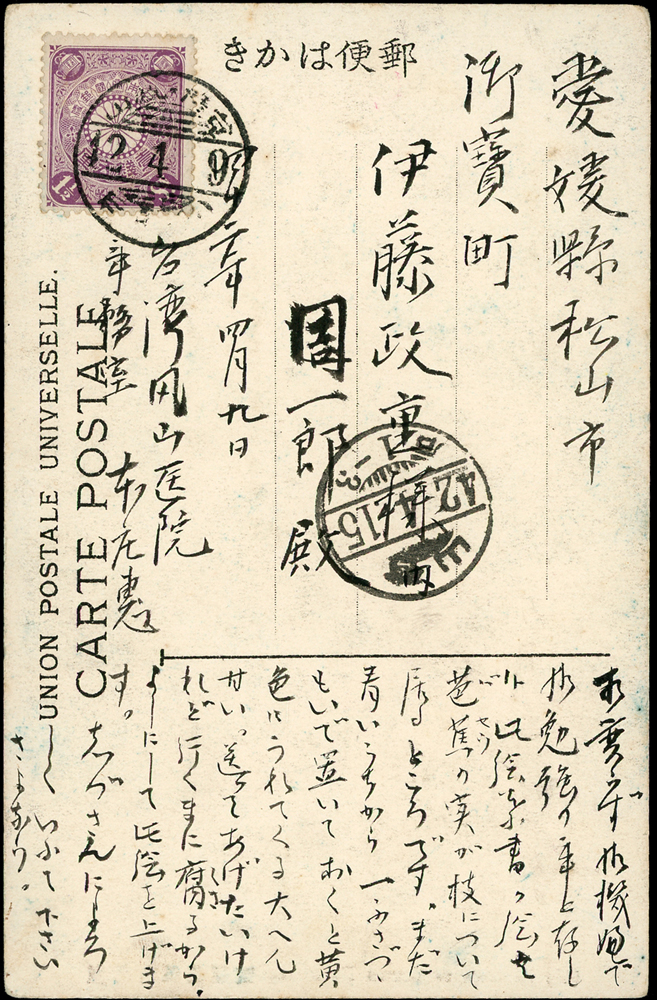 郵便はかき
愛媛縣松山市
御寶町
伊藤政重様内
固一郎殿
四十二年四月九日
台湾鳳山医院
本庄
UNION POSTALE UNIVERSELLE.
CARTE POSTALE
12 4 9
42 4 15
相変らず御機嫌で
御勉強の事と存し
此絵葉書の絵は
芭蕉の実が枝について
居るところです。まだ
青いうちから一ふさづゝ
もいで置いておくと黄
色にうれてくる大へん
甘い。送ってあげたいけ
れど行くまに腐るから。
よしにして此絵を上げま
す。しづさんによろ
しくいふて下さい
さよなら。